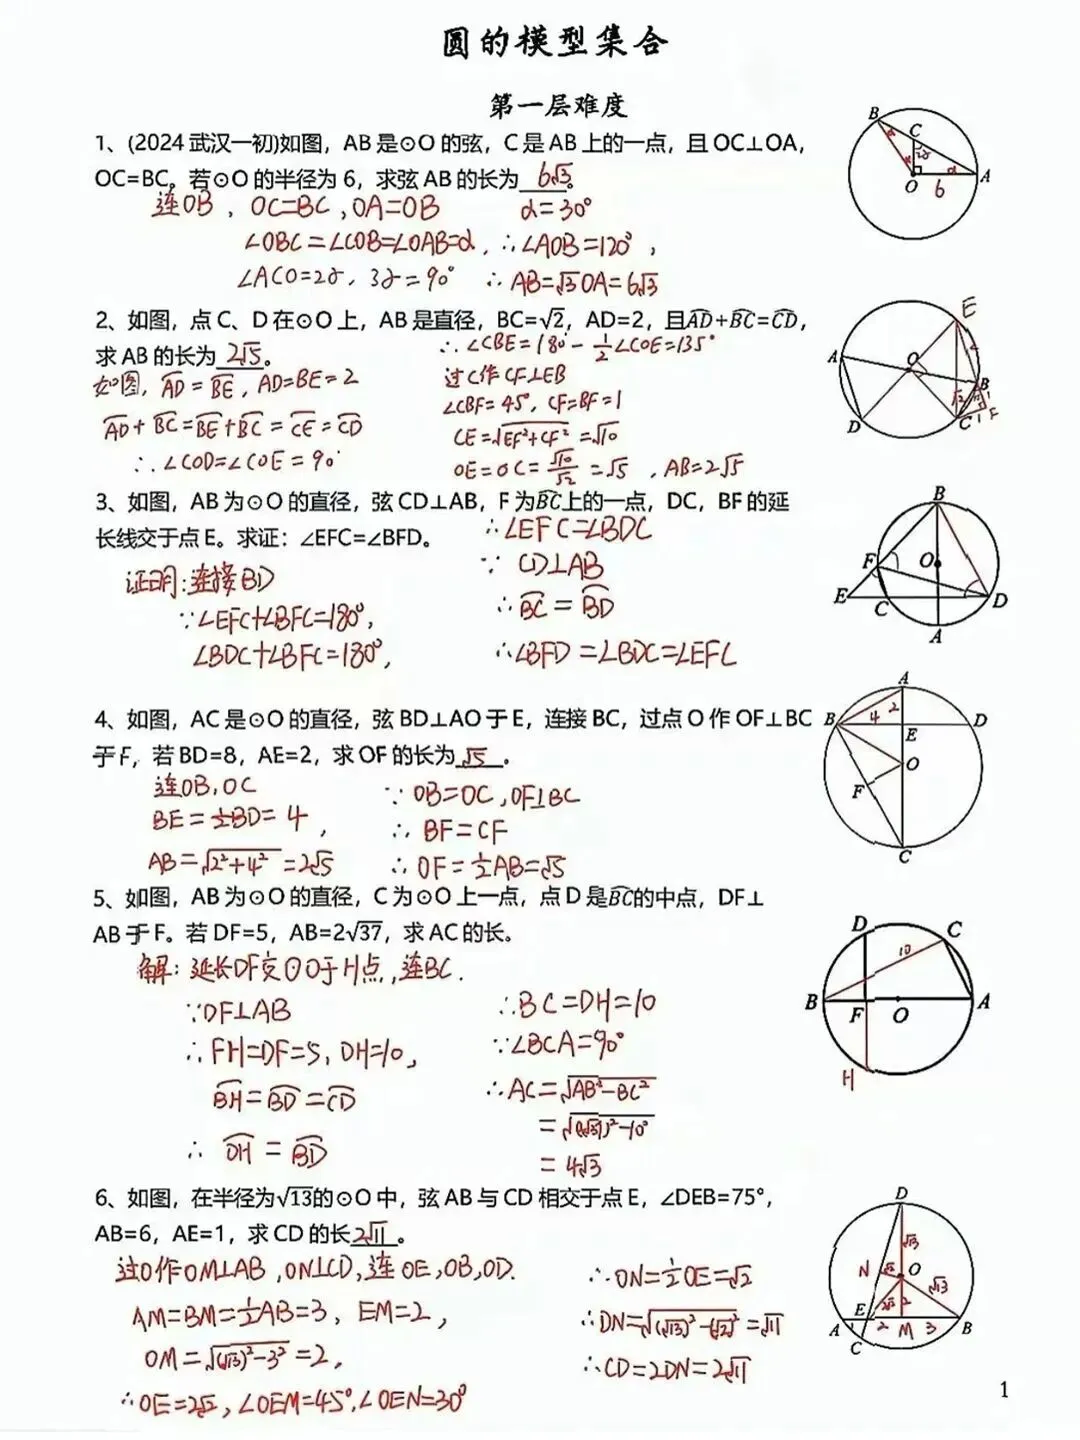 圆的模型集合
第一层难度
1、(2024 武汉一初)如图，AB 是⊙O 的弦，C 是 AB 上的一点，且 OC⊥OA，
OC=BC。若⊙O 的半径为 6，求弦 AB 的长为 6√3。
连OB，OC=BC，OA=OB
∠OBC=∠COB=∠OAB=α，
∠ACO=2α，3α=90°
α=30°
∴∠AOB=120°，
∴AB=√3OA=6√3
B
C
2α
α
α
α
O
6
A
2、如图，点 C、D 在⊙O 上，AB 是直径，BC=√2，AD=2，且AD⌢+BC⌢=CD⌢，
求 AB 的长为 2√5。
如图，AD⌢=BE⌢，AD=BE=2
AD⌢+BC⌢=BE⌢+BC⌢=CE⌢=CD⌢
∴∠COD=∠COE=90°
∴∠CBE=180°-½∠COE=135°
过C作CF⊥EB
∠CBF=45°，CF=BF=1
CE=√(EF²+CF²)=√10
OE=OC=√10/√2=√5，AB=2√5
E
A
O
B
√2
1
D
C
1
F
3、如图，AB 为⊙O 的直径，弦 CD⊥AB，F 为BC⌢上的一点，DC，BF 的延
长线交于点 E。求证：∠EFC=∠BFD。
证明：连接BD
∵∠EFC+∠BFC=180°，
∠BDC+∠BFC=180°，
∴∠EFC=∠BDC
∵ CD⊥AB
∴BC⌢=BD⌢
∴∠BFD=∠BDC=∠EFC
B
F
O
E
C
D
A
4、如图，AC 是⊙O 的直径，弦 BD⊥AO 于 E，连接 BC，过点 O 作 OF⊥BC
于 F，若 BD=8，AE=2，求 OF 的长为 √5。
连OB，OC
BE=½BD=4，
AB=√(2²+4²)=2√5
∵OB=OC，OF⊥BC
∴ BF=CF
∴ OF=½AB=√5
A
2
B
4
D
E
O
F
C
5、如图，AB 为⊙O 的直径，C 为⊙O 上一点，点 D 是BC⌢的中点，DF⊥
AB 于 F。若 DF=5，AB=2√37，求 AC 的长。
解：延长DF交⊙O于H点，连BC.
∵DF⊥AB
∴FH=DF=5，DH=10，
BH⌢=BD⌢=CD⌢
∴ DH⌢=BD⌢
∴BC=DH=10
∵∠BCA=90°
∴AC=√(AB²-BC²)
=√((2√37)²-10²)
=4√3
D
C
10
B
F
O
A
H
6、如图，在半径为√13的⊙O 中，弦 AB 与 CD 相交于点 E，∠DEB=75°，
AB=6，AE=1，求 CD 的长 2√11。
过O作OM⊥AB，ON⊥CD，连OE，OB，OD.
AM=BM=½AB=3，EM=2，
OM=√((√13)²-3²)=2，
∴OE=2√2，∠OEM=45°，∠OEN=30°
∴ON=½OE=√2
∴DN=√((√13)²-(√2)²)=√11
∴CD=2DN=2√11
D
√13
N
√2
O
√13
E
2√2
2
A
1
2
M
3
B
C
1